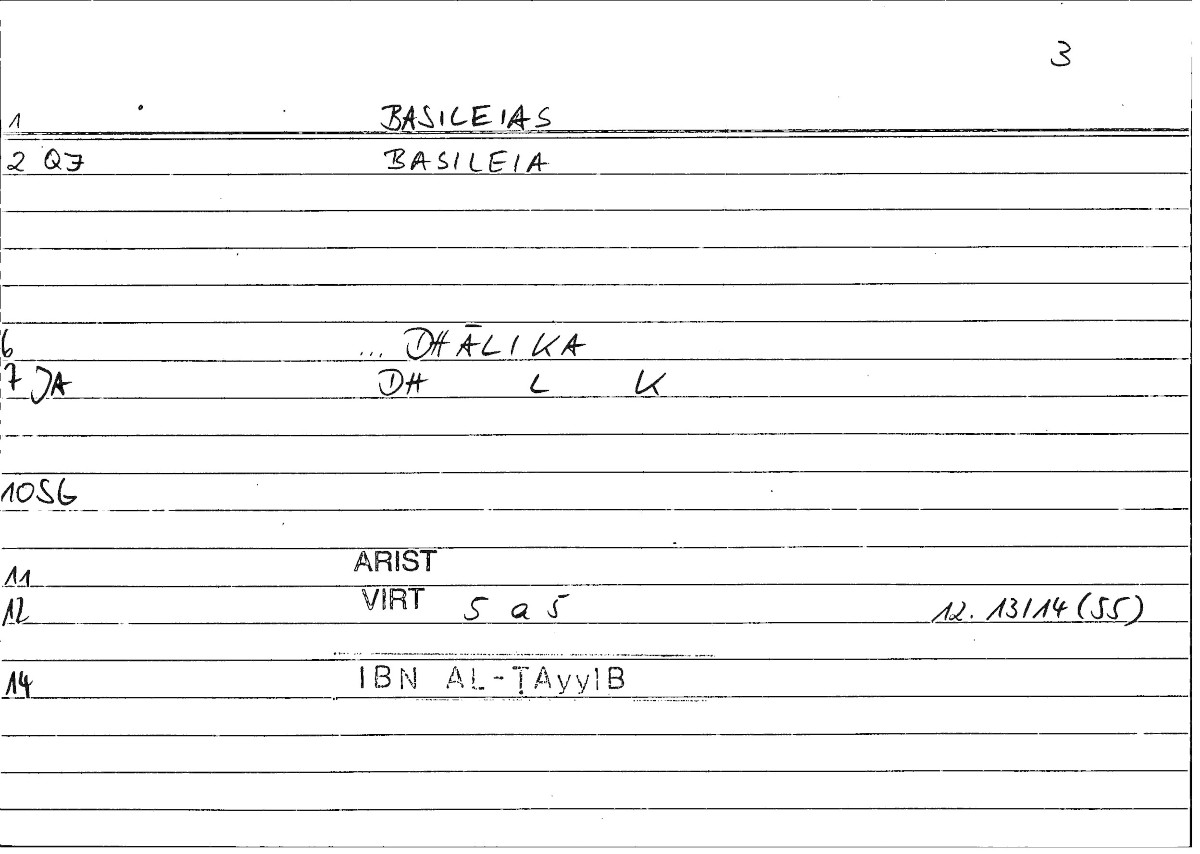 3
1 BASILEIAS
2 Q7 BASILEIA
6 ... DHĀLIKA
7 JA DH L K
10 SG
11 ARIST
12 VIRT 5 a 5 12. 13/14 (55)
14 IBN AL-ṬAyyIB